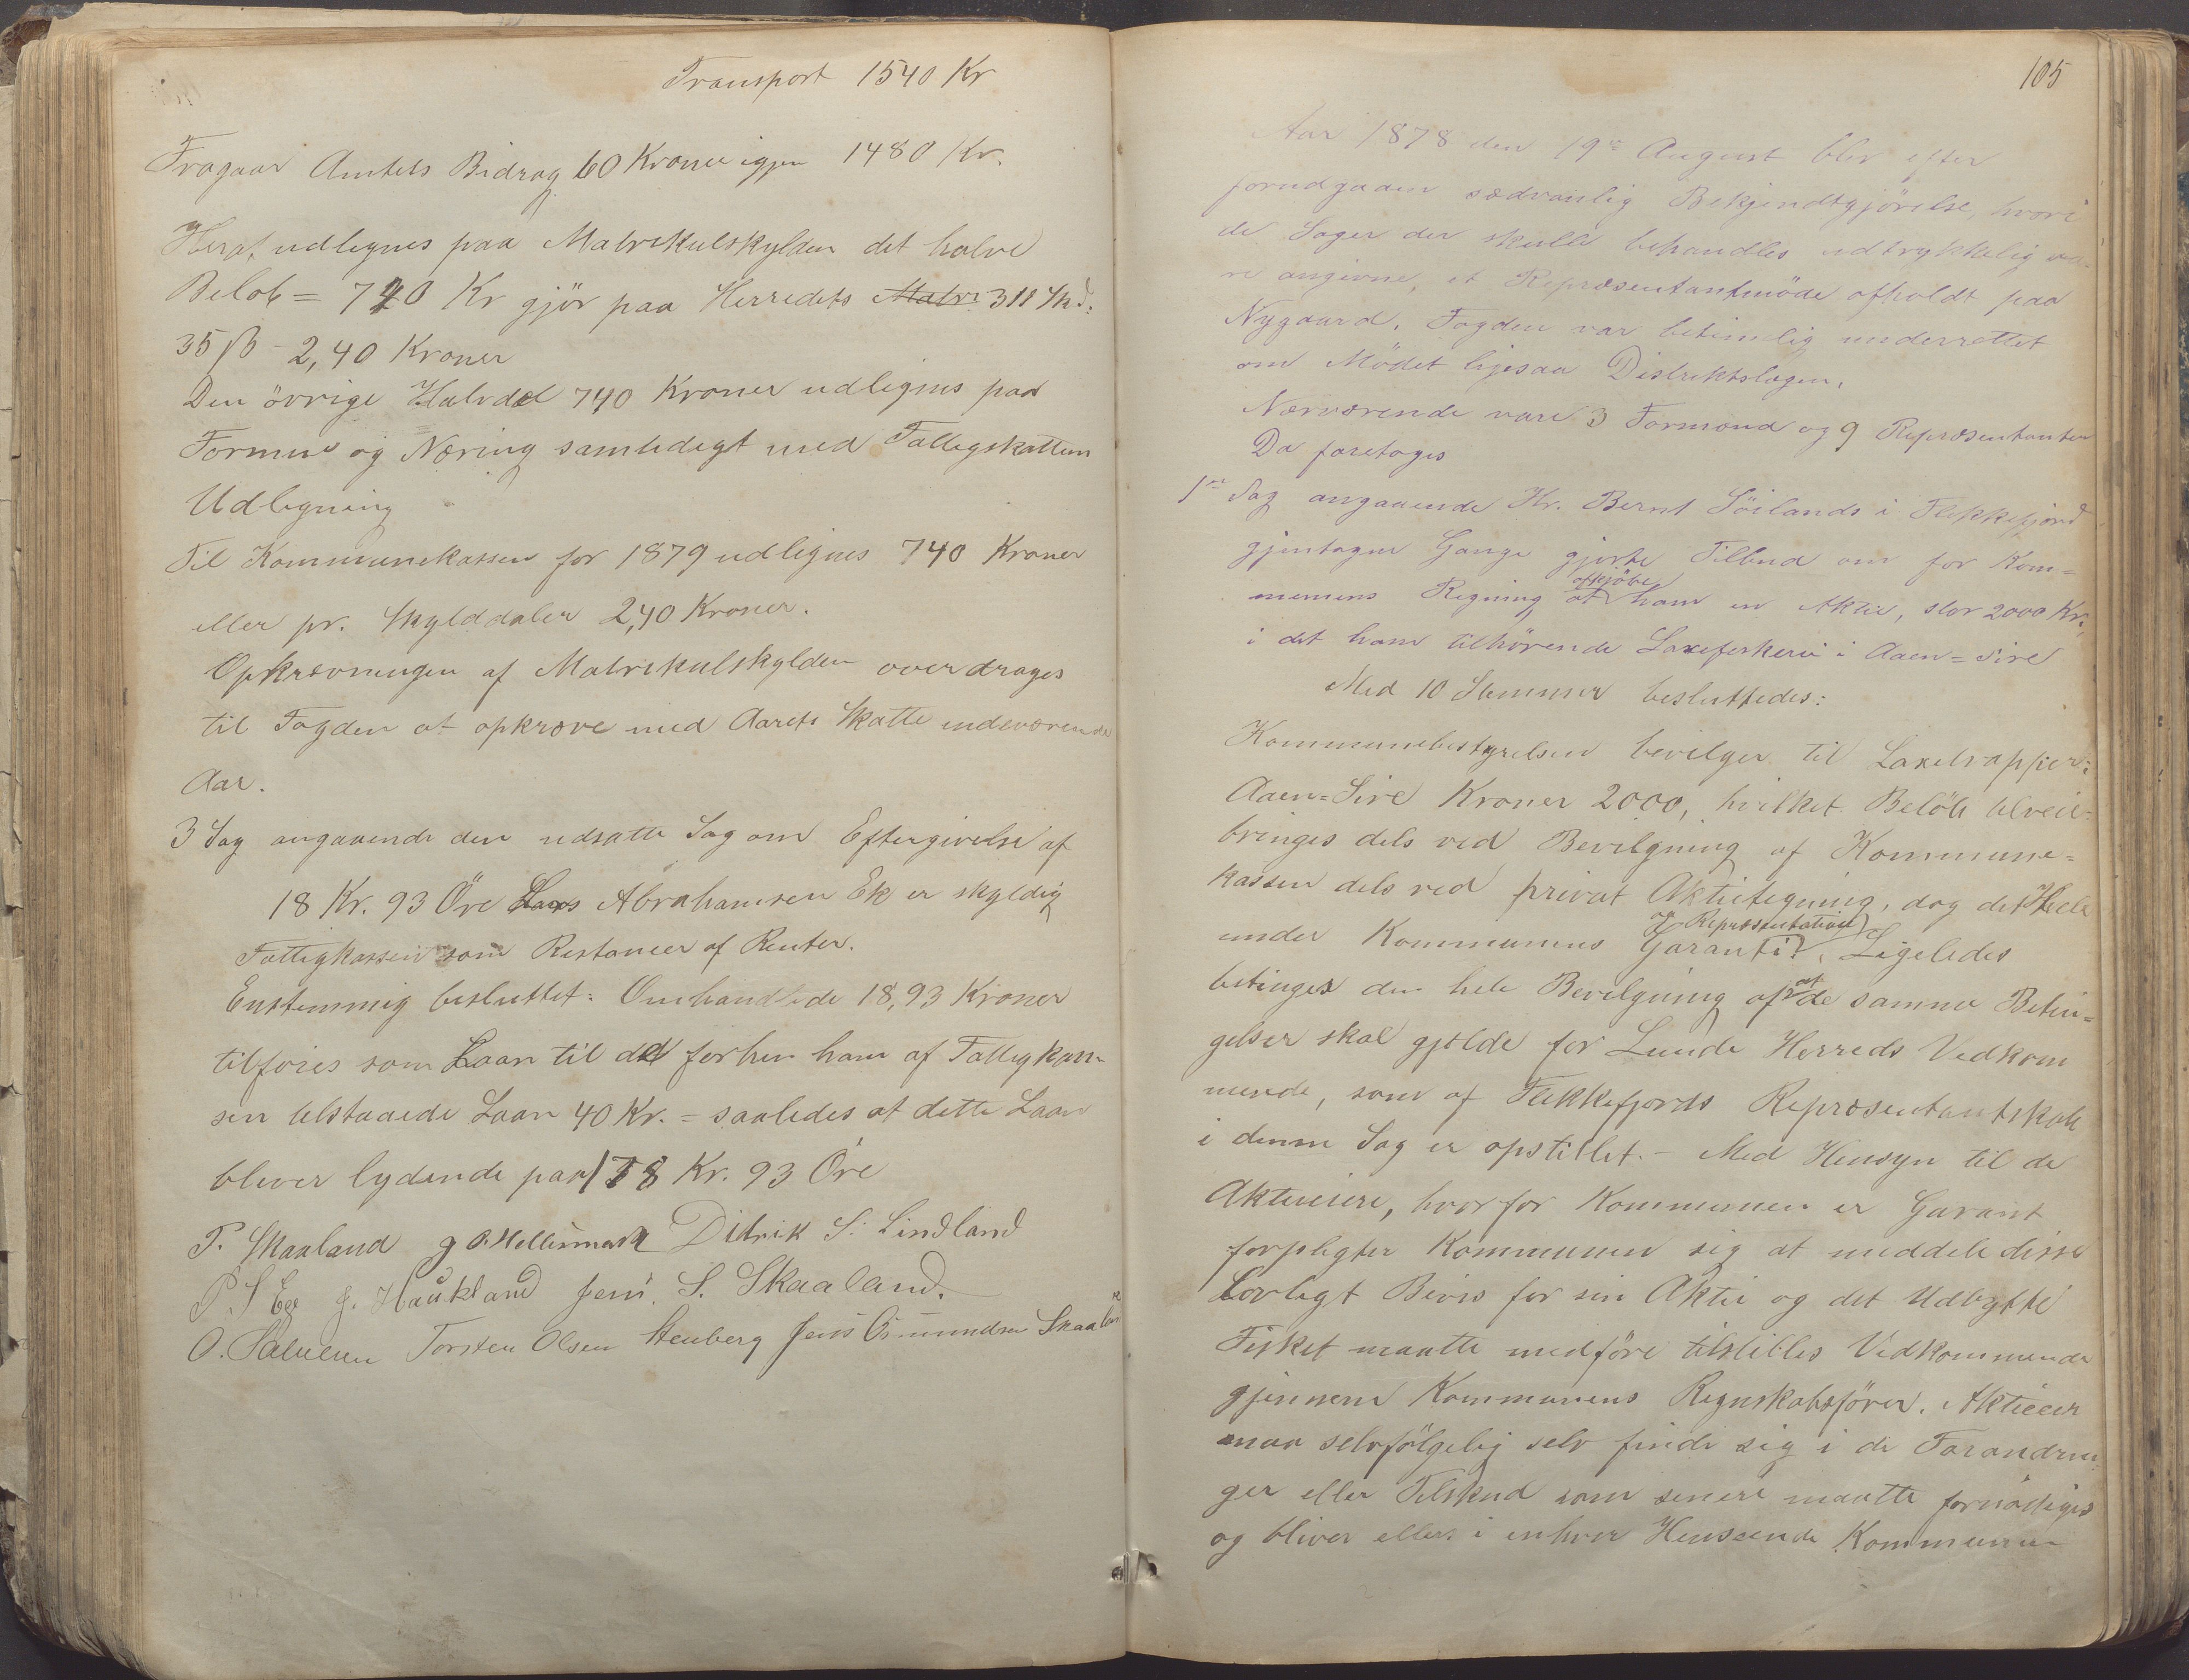 Transport 1540 Kr
Fragaar Amtets Bidrag 60 Kroner igjen 1480 Kr.
Heraf udlignes paa Matrikulskylden det halve
Beløb = 740 Kr gjör paa Herredets Matr. 311 Skd.
35 ß - 2,40 Kroner
Den övrige Halvdel 740 Kroner udlignes paa
Formue og Næring samledegt med Fattigskattens
Udligning
Til Kommunekassen for 1879 udlignes 740 Kroner
eller pr. Skylddaler 2,40 Kroner.
Opkrævningen af Matrikulskylden overdrages
til Fogden at opkræve med Aarets Skatte indeværende
Aar.
3 Sag angaaende den udsatte Sag om Eftergivelse af
18 Kr. 93 Öre Lars Abrahamsen Ek er skyldig
Fattigkassen som Restancer af Renter.
Enstemmig besluttet: Omhandlede 18,93 Kroner
tilföies som Laan til det forhen ham af Fattigkas-
sen tilstaaede Laan 40 Kr. = saaledes at dette Laan
bliver lydende paa 178 Kr. 93 Öre
P. Skaaland J O. Hellesmark Didrik S. Lindland
P S Ege J. Haukland Jens. S. Skaaland.
O. Salvesen Torsten Olsen Stenberg Jens Osmundsen Skaaland
105
Aar 1878 den 19de August blev efter
forudgaaen sædvanlig Bekjendtgjörelse, hvori
de Sager der skulle behandles udtrykkelig va-
re angivne, et Repræsentantmöde afholdt paa
Nygaard. Fogden var betimelig underrettet
om Mödet ligesaa Distriktslægen.
Nærværende vare 3 Formænd og 9 Repræsentanter
Da foretoges
1ste Sag angaaende Hr. Bernt Söilands i Flekkefjord
gjentagne Gange gjorte Tilbud om for Kom-
munens Regning at afkjöbe ham en Aktie, stor 2000 Kr,
i det ham tilhörende Laxefiskerie i Aaen=Sire
Med 10 Stemmer besluttedes:
Kommunebestyrelsen bevilger til Laxetrapper i
Aaen=Sire Kroner 2000, hvilket Belöb tilveie-
bringes dels ved Bevilgning af Kommune-
kassen dels ved privat Aktietegning, dog det Hele
under Kommunens Garanti og Repræsentation. Ligeledes
betinges den hele Bevilgning af at de samme Betin-
gelser skal gjælde for Lunde Herreds Vedkom
mende, som af Flekkefjords Repræsentantskab
i denne Sag er opstillet. - Med Hensyn til de
Aktieeiere, hvorfor Kommunen er Garant
forpligter Kommunen sig at meddele disse
Lovligt Bevis for sin Aktie og det Udbytte
Fisket maatte medföre tilstilles Vedkommende
gjennem Kommunens Regnskabsförer. Aktieeier
maa selvfölgelig selv finde sig i de Forandrin-
ger eller Tilskud som senere maatte fornödiges
og bliver ellers i enhver Henseende Kommunen